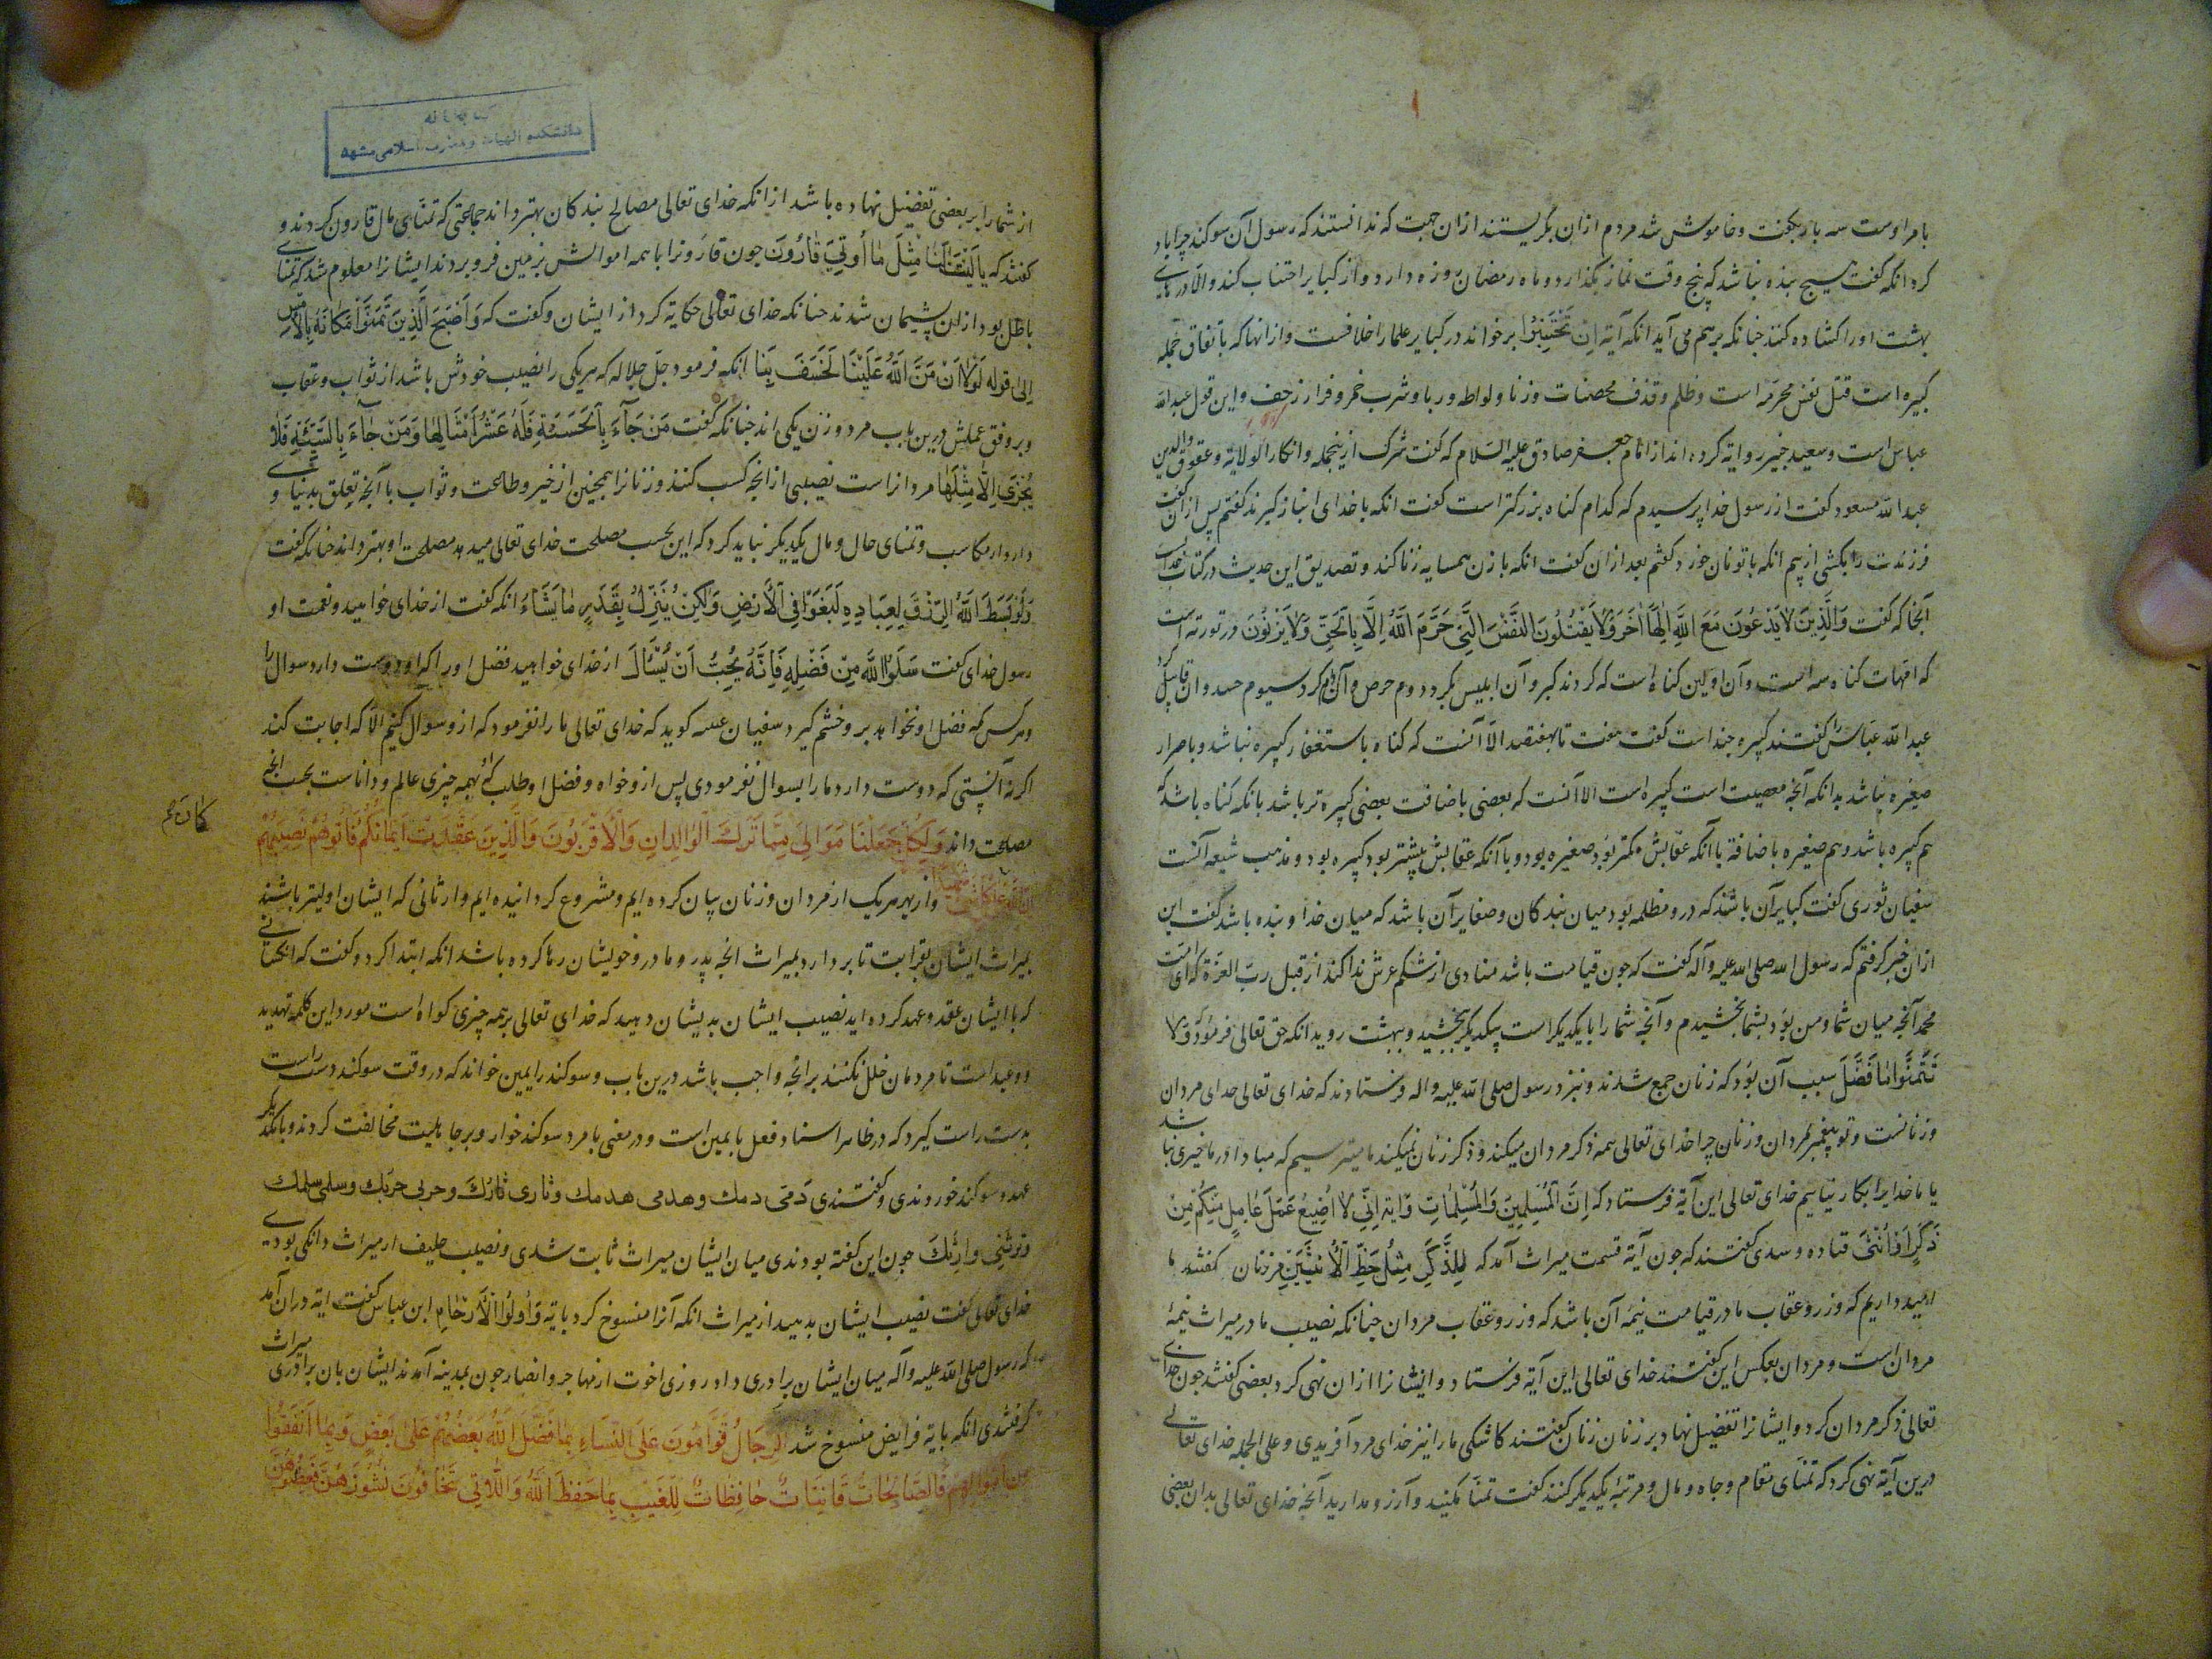 بامر اوست سه بار بکفت و خاموش شد مردم ازان بکریستند ازان جهت که ندانستند که رسول آن سوکند چرا یاد
کرد انکه کفت هیچ بنده نباشد که پنج وقت نماز بکذارد و ماه رمضان روزه دارد و از کبایر اجتناب کند والا درهای
بهشت او را کشاده کنند جنانکه برهم می آید انکه آیة اِن تَجْتَنِبُوا برخواند در کبایر علما را خلافست و ازانها که باتفاق جمله
کبیره است قتل نفس محرمه است و ظلم و قذف محصنات و زنا و لواطه و ربا و شرب خمر و فرار زحف و این قول عبدالله
عباس است و سعید جبیر روایة کرده اند از امام جعفر صادق علیه السلام که کفت شرک ازینجمله و انکار الولایة و عقوق والدین
عبدالله مسعود کفت از رسول خدا پرسیدم که کدام کناه بزرکتر است کفت انکه با خدای انباز کیرند کفتم پس ازان کفت
فرزندت را بکشی از بیم انکه با تو نان خورد کفتم بعد ازان کفت انکه با زن همسایه زنا کند و تصدیق این حدیث در کتاب خداست
آنجا که کفت وَالَّذِینَ لاٰیَدْعُونَ مَعَ اللّٰهِ اِلٰهًا اٰخَرَ وَلاٰ یَقْتُلُونَ النَّفْسَ الَّتِی حَرَّمَ اللّٰهُ اِلّٰا بِالْحَقِّ وَلاٰ یَزْنُونَ و در توریة است
که امهات کناه سه است و آن اولین کناه است که کردند کبر و آن ابلیس بکرد دوم حرص و آن آدم کرد سیوم حسد و آن قابیل کرد
عبدالله عباس را کفتند کبیره جند است کفت هفت تا بهفتصد الا آنست که کناه باستغفار کبیره نباشد و باصرار
صغیره نباشد بدانکه آنچه معصیت است کبیره است الا آنست که بعضی باضافت بعضی کبیره تر باشد بانکه کناه باشد که
هم کبیره باشد و هم صغیره باضافة باآنکه عقابش کمتر بود صغیره بود و باآنکه عقابش بیشتر بود کبیره بود و مذهب شیعه آنست
سفیان ثوری کفت کبایر آن باشد که درو مظلمه بود میان بندکان و صغایر آن باشد که میان خدا و بنده باشد کفت این
ازان خبر کرفتم که رسول الله صلی الله علیه وآله کفت که جون قیامت باشد منادی از شکم عرش ندا کند از قبل رب العزة که ای امت
محمد آنچه میان شما و من بود بشما بخشیدم و آنچه شما را با یکدیکر است بیکدیکر بخشید و ببهشت روید انکه حق تعالی فرمود که وَلاٰ
تَتَمَنَّوْا مٰا فَضَّلَ سبب آن بود که زنان جمع شدند و نزد رسول صلی الله علیه واله فرستادند که خدای تعالی خدای مردان
و زنانست و تو پیغمبر مردان و زنان چرا خدای تعالی همه ذکر مردان میکند و ذکر زنان نمیکند ما میترسیم که مبادا در ما خیری نباشد
یا ما خدایرا بکار نیاییم خدای تعالی این آیة فرستاد که اِنَّ الْمُسْلِمِینَ وَالْمُسْلِمٰاتِ و آیة اِنّی لاٰ اُضِیعُ عَمَلَ عٰامِلٍ مِنْکُمْ مِنْ
ذَکَرٍ اَوْ اُنْثٰی قتاده و سدی کفتند که جون آیة قسمت میراث آمد که لِلذَّکَرِ مِثْلُ حَظِّ الْاُنْثَیَیْنِ زنان کفتند ما
امید داریم که وزر و عقاب ما در قیامت نیمه آن باشد که وزر و عقاب مردان جنانکه نصیب ما در میراث نیمهٔ
مردان است و مردان بعکس این کفتند خدای تعالی این آیة فرستاد و ایشانرا ازان نهی کرد بعضی کفتند جون خدای
تعالی ذکر مردان کرد و ایشانرا تفضیل نهاد بر زنان زنان کفتند کاشکی ما را نیز خدای مرد آفریدی و علی الجمله خدای تعالی
درین آیة نهی کرد که تمنای مقام و جاه و مال و مرتبه یکدیکر کنند کفت تمنا مکنید و آرزو مدارید آنچه خدای تعالی بدان بعضی
دانشکده الهیات و معارف اسلامی مشهد
از شما را بر بعضی تفضیل نهاده باشد ازانکه خدای تعالی مصالح بندکان بهتر داند جماعتی که تمنای مال قارون کردند و
کفتند که یٰا لَیْتَ لَنٰا مِثْلَ مٰا اُوتِیَ قٰارُونَ جون قارونرا با همه اموالش بزمین فرو بردند ایشانرا معلوم شد که تمنای
باطل بود ازان پشیمان شدند جنانکه خدای تعالی حکایة کرد از ایشان و کفت که وَاَصْبَحَ الَّذِینَ تَمَنَّوْا مَکٰانَهُ بِالْاَمْسِ
اِلٰی قوله لَوْلاٰ اَنْ مَنَّ اللّٰهُ عَلَیْنٰا لَخَسَفَ بِنٰا انکه فرمود جل جلاله که هریکی را نصیب خودش باشد از ثواب و عقاب
و بروفق عملش درین باب مرد و زن یکی اند جنانکه کفت مَنْ جٰاءَ بِالْحَسَنَةِ فَلَهُ عَشْرُ اَمْثٰالِهٰا وَمَنْ جٰاءَ بِالسَّیِّئَةِ فَلاٰ
یُجْزٰی اِلّٰا مِثْلَهٰا مردانراست نصیبی ازانچه کسب کنند و زنانرا همچنین از خیر و طاعت و ثواب با آنچه تعلق بدنیای و
دارد از مکاسب و تمنای حال و مال یکدیکر نباید کرد که این بحسب مصلحت خدای تعالی میدهد مصلحت او بهتر داند جنانکه کفت
وَلَوْ بَسَطَ اللّٰهُ الرِّزْقَ لِعِبٰادِهِ لَبَغَوْا فِی الْاَرْضِ وَلٰکِنْ یُنَزِّلُ بِقَدَرٍ مٰا یَشٰاءُ انکه کفت از خدای خواهید و نعمت او
رسول خدای کفت سَلُوا اللّٰهَ مِنْ فَضْلِهِ فَاِنَّهُ یُحِبُّ اَنْ یُسْئَالَ از خدای خواهید فضل او را که او دوست دارد سوال را
و هرکس که فضل او نخواهد برو خشم کیرد سفیان عیینه کوید که خدای تعالی ما را نفرمود که ازو سوال کنیم الا که اجابت کند
اکر نه آنستی که دوست دارد ما را بسوال نفرمودی پس ازو خواه و فضل او طلب که او بهمه چیزی عالم و داناست بحسب انچه
مصلحت داند وَلِکُلٍّ جَعَلْنٰا مَوٰالِیَ مِمّٰا تَرَکَ الْوٰالِدٰانِ وَالْاَقْرَبُونَ وَالَّذِینَ عَقَدَتْ اَیْمٰانُکُمْ فَاٰتُوهُمْ نَصِیبَهُمْ
و از بهر هریک از مردان و زنان بیان کرده ایم و مشروع کردانیده ایم وارثانی که ایشان اولیتر باشند
بمیراث ایشان بقرابت تا بردارد بمیراث انچه پدر و مادر و خویشان رها کرده باشد انکه ابتدا کرد و کفت که انکسانی
که با ایشان عقد و عهد کرده اید نصیب ایشان بدیشان دهید که خدای تعالی برهمه چیزی کواه است مورد این کلمه تهدید
و وعید است تا مردمان خلل نکنند برانچه واجب باشد درین باب و سوکند را یمین خواند که در وقت سوکند دست راست
بدست راست کیرد که در ظاهر اسناد فعل با یمین است و در معنی با مرد سوکند خوار و بر جاهلیت مخالفت کردند و با یکدیکر
عهد و سوکند خوردندی و کفتندی دَمی دمک و هدمی هدمک و ثاری ثارُکَ و حربی حربک و سلمی سلمک
و ترثنی وارثکَ جون این کفته بودندی میان ایشان میراث ثابت شدی و نصیب حلیف از میراث دانکی بودی
خدای تعالی کفت نصیب ایشان بدهید از میراث انکه آنرا منسوخ کرد بایة وَاُولُوا الْاَرْحٰامِ ابن عباس کفت ایة دران آمد
که رسول صلی الله علیه وآله میان ایشان برادری داد روزی اخوت از مهاجر و انصار جون بمدینه آمدند ایشان بان برادری میراث
کرفتندی انکه بایة فرایض منسوخ شد الرِّجٰالُ قَوّٰامُونَ عَلَی النِّسٰاءِ بِمٰا فَضَّلَ اللّٰهُ بَعْضَهُمْ عَلٰی بَعْضٍ وَبِمٰا اَنْفَقُوا
مِنْ اَمْوٰالِهِمْ فَالصّٰالِحٰاتُ قٰانِتٰاتٌ حٰافِظٰاتٌ لِلْغَیْبِ بِمٰا حَفِظَ اللّٰهُ وَاللّٰاتِی تَخٰافُونَ نُشُوزَهُنَّ فَعِظُوهُنَّ